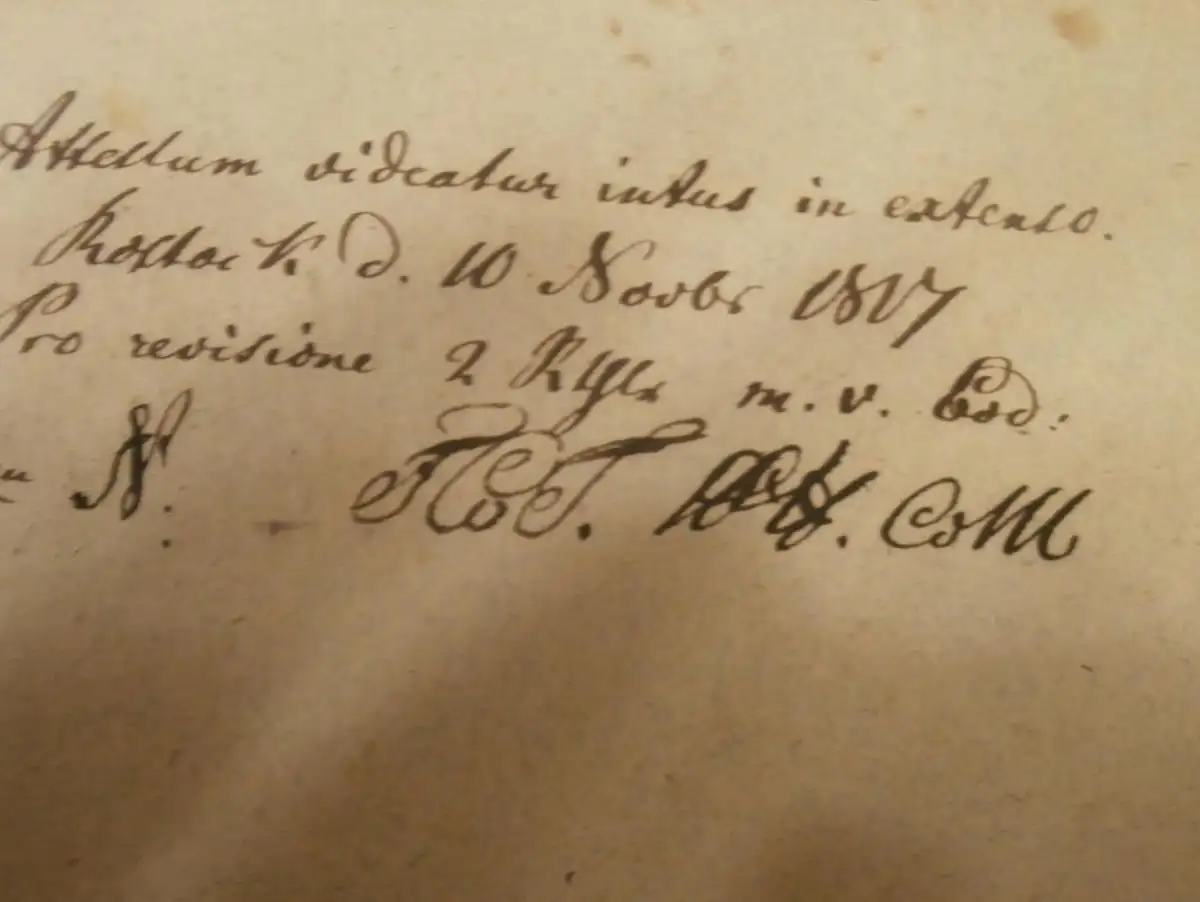 Attestum videatur intus in extenso.
Rostock d. 10 Novbr 1817
Pro revisione 2 Rthlr m. v. Cod:
N.